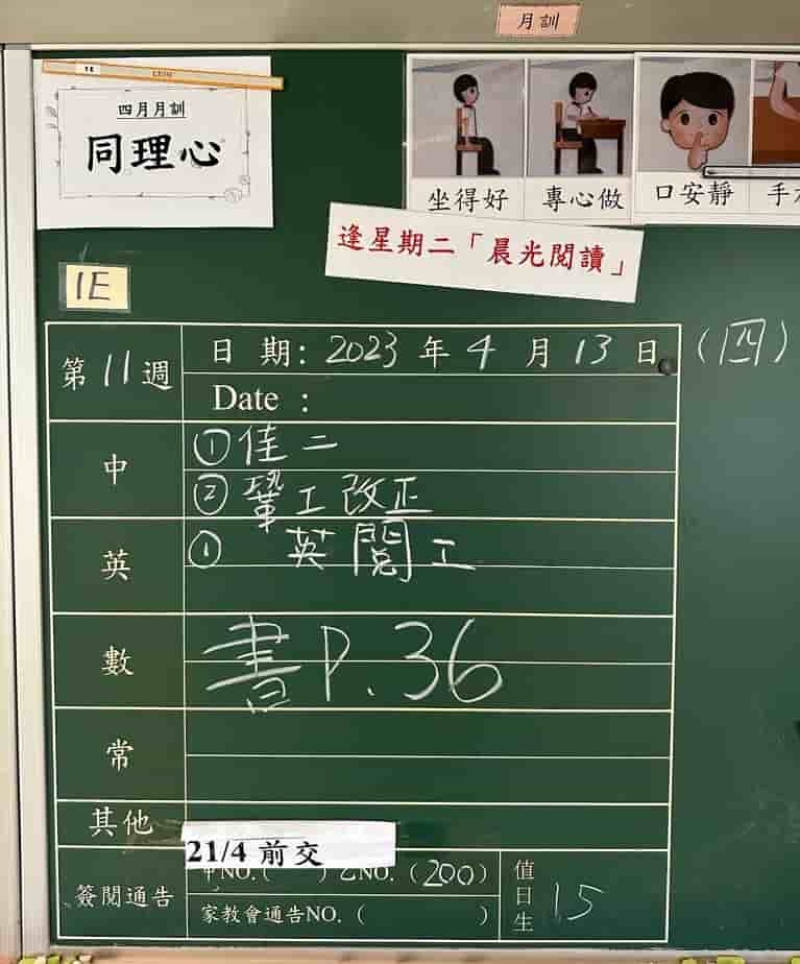 月訓
四月月訓
同理心
坐得好
專心做
口安靜
手
逢星期二「晨光閱讀」
1E
第11週
日期: 2023 年 4 月 13 日 (四)
Date :
中
①佳二
②鞏工改正
英
① 英閱工
數
書P.36
常
其他
21/4 前交
簽閱通告
NO.( ) 乙NO. (200)
家教會通告NO. ( )
值日生
15